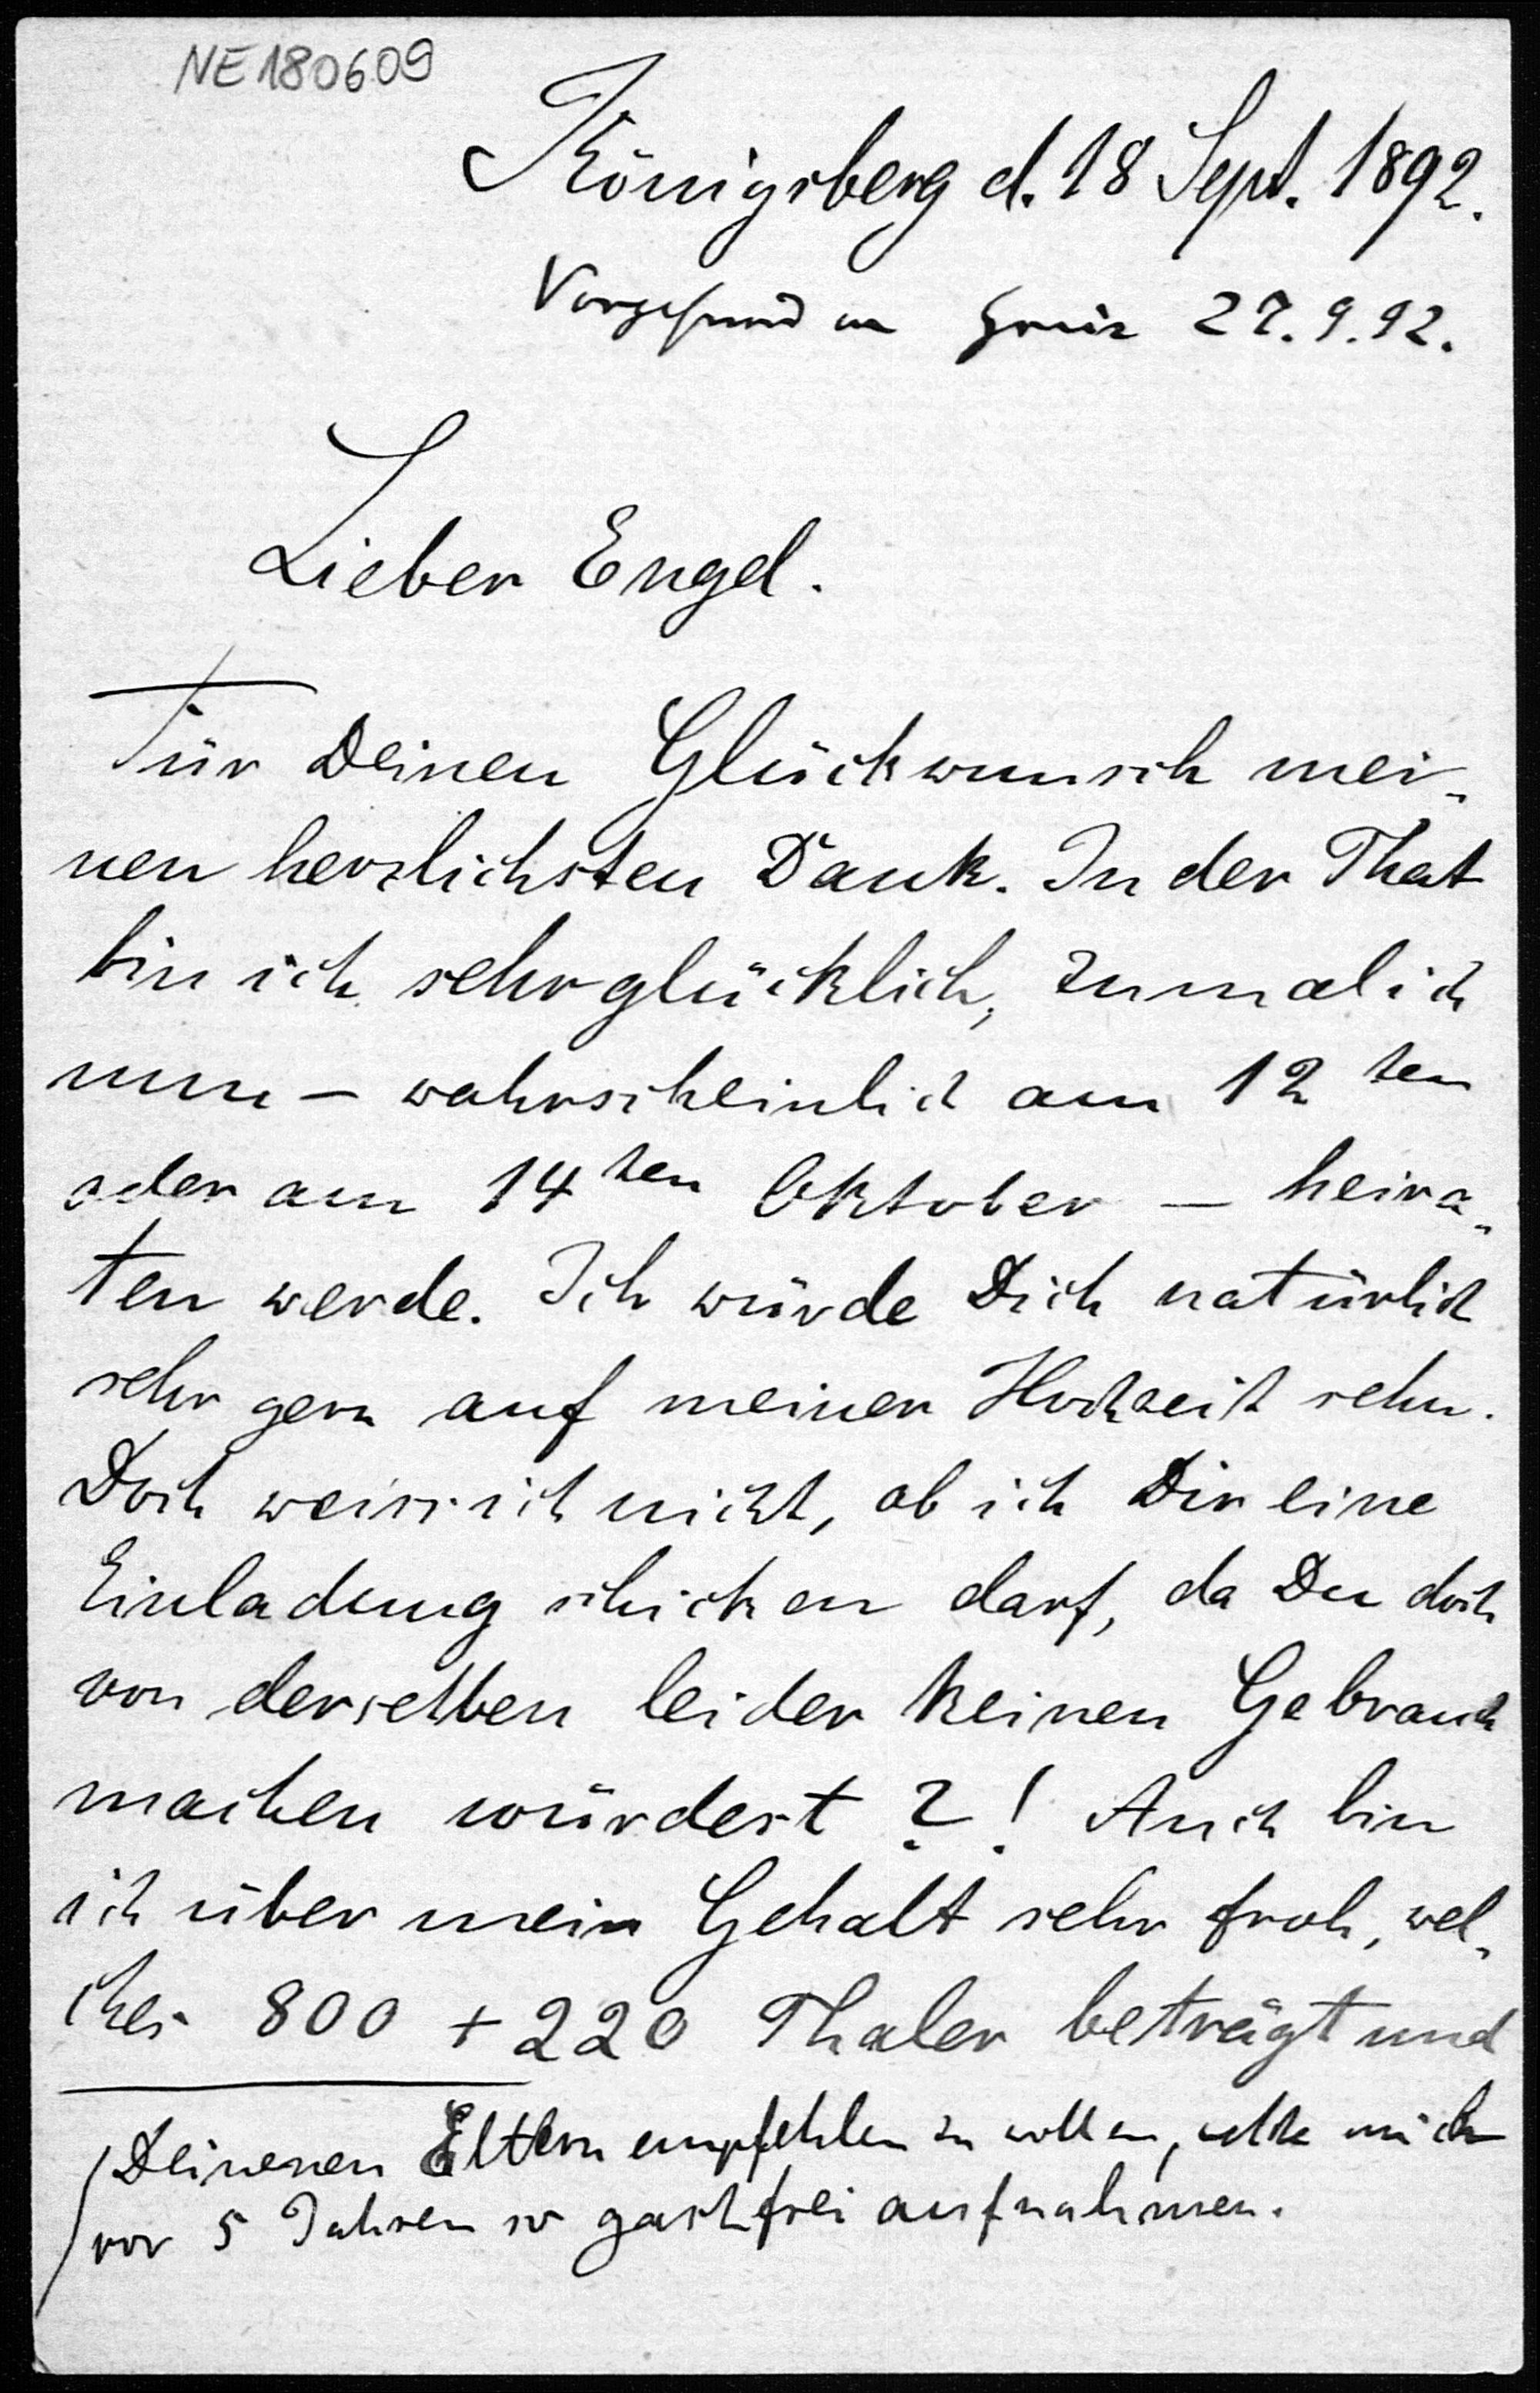 NE180609
Königsberg d. 18 Sept. 1892.
27.9.92.
Lieber Engel.
Für Deinen Glückwunsch mei„
nen herzlichsten Dank. In der That
bin ich sehr glücklich, zumal ich
nun – wahrscheinlich am 12ten
oder am 14ten Oktober – heira„
ten werde. Ich würde Dich natürlich
sehr gern auf meiner Hochzeit sehn.
Doch weiss ich nicht, ob ich Dir eine
Einladung schicken darf, da Du doch
von derselben leider keinen Gebrauch
machen würdest?! Auch bin
ich über mein Gehalt sehr froh, wel„
ches 800 + 220 Thaler beträgt und
Deinenen Eltern empfehlen zu wollen, welche mich
vor 5 Jahren so gastfrei aufnahmen.